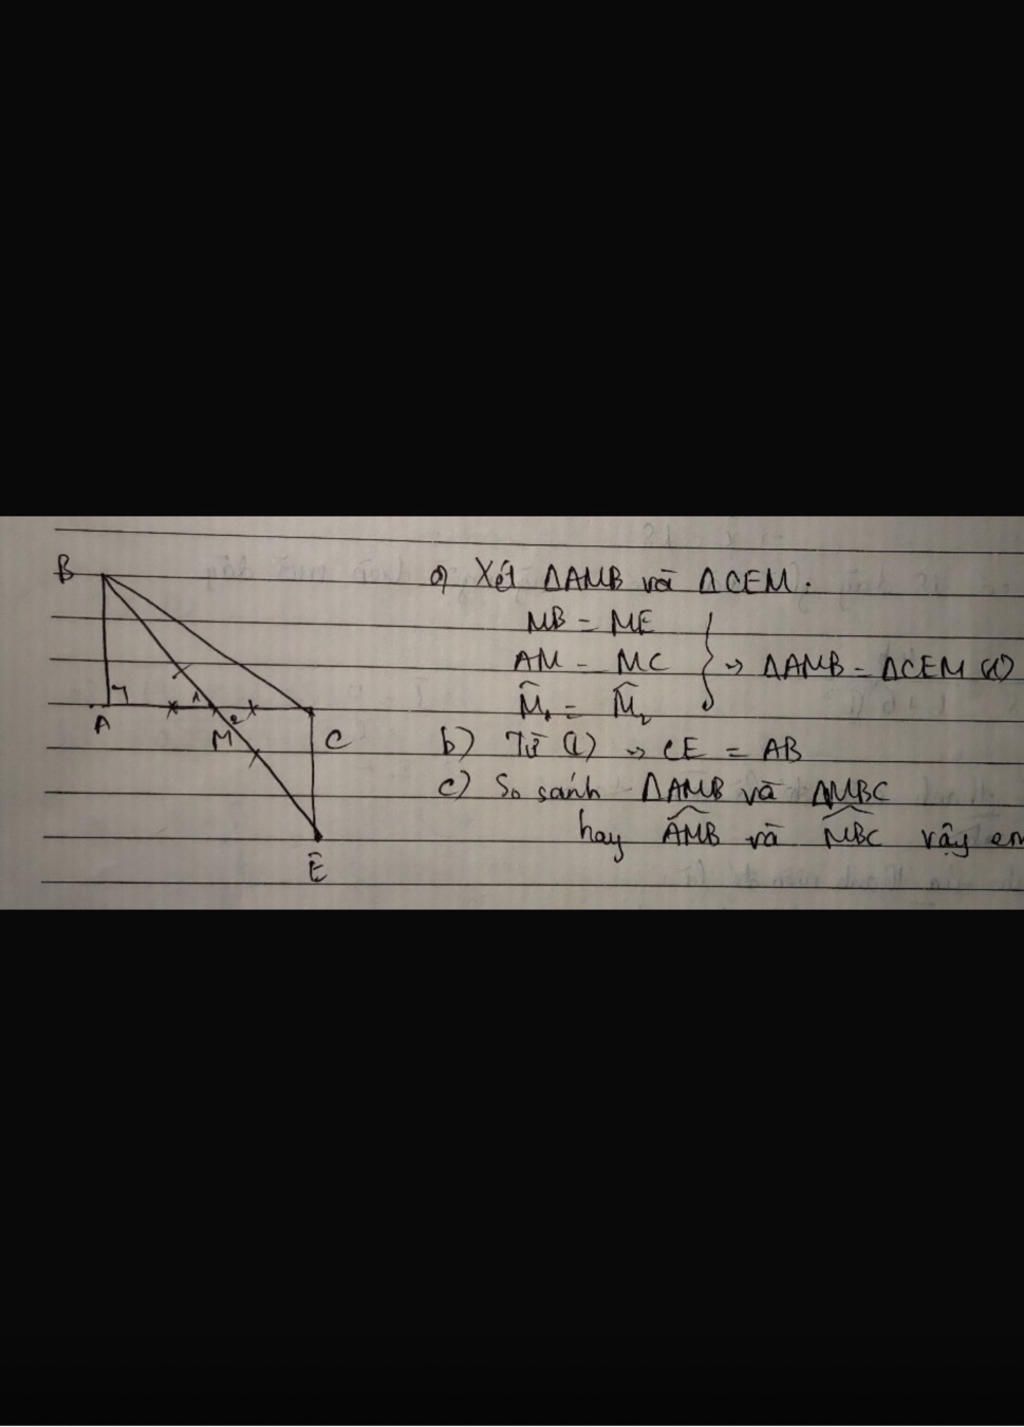 B
a) Xét ΔAMB và ΔCEM.
MB = ME
AM = MC
M̂₁ = M̂₂
→ ΔAMB = ΔCEM (1)
A
1
2
M
C
b) Từ (1) → CE = AB
c) So sánh ΔAMB và ΔMBC
hay \widehat{AMB} và \widehat{MBC} vậy em
E